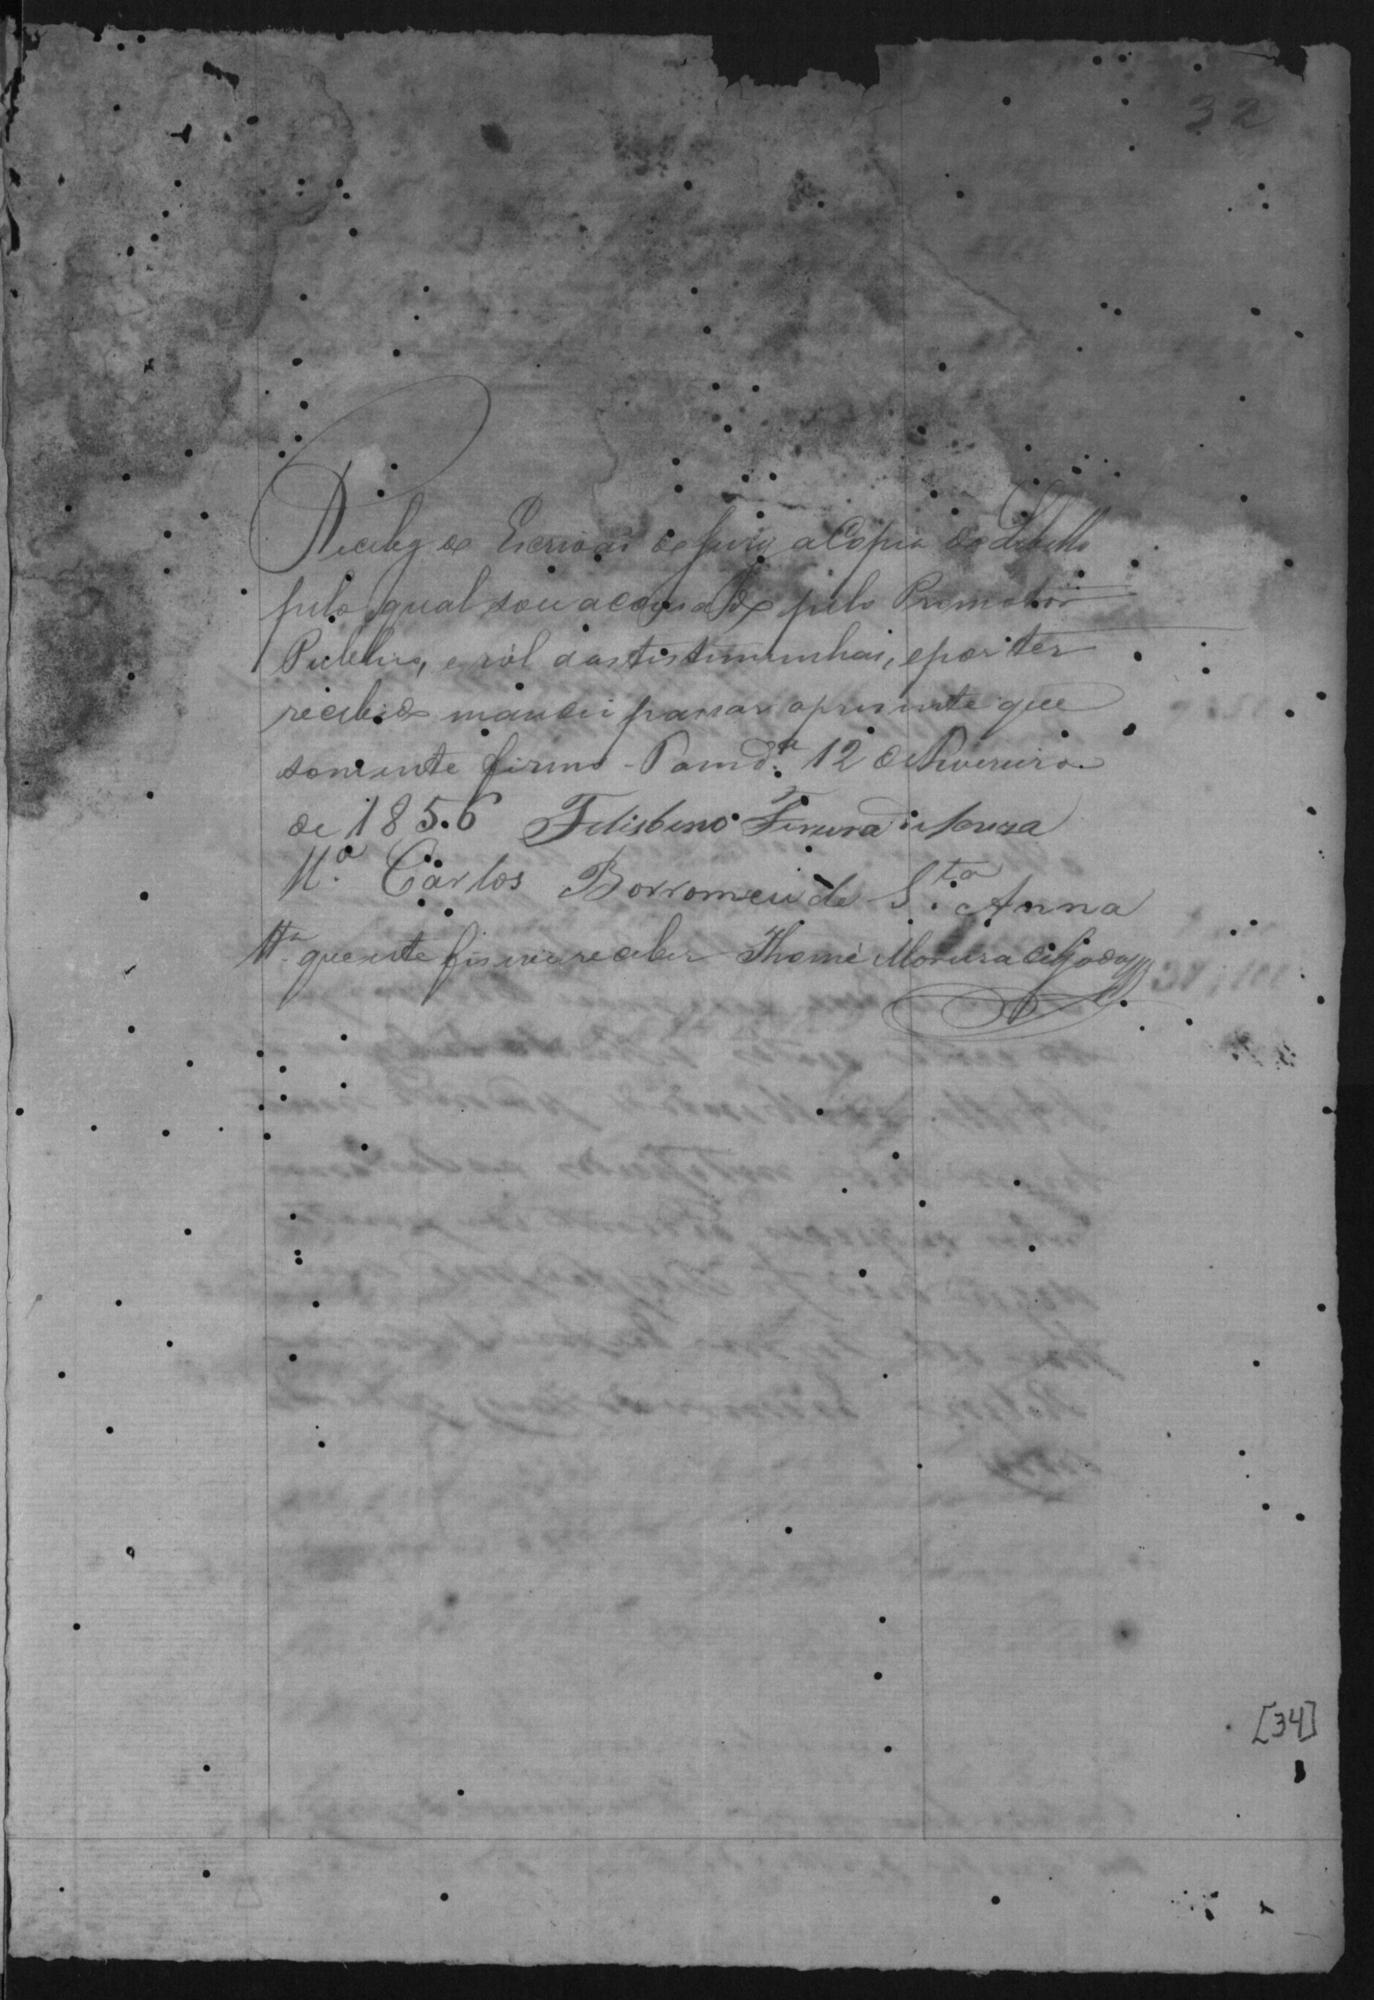 32
Recebi do Escrivaõ do Jury a Copia do Libello
pelo qual sou acousado pelo Promotor
Publico, e ról das testimunhas, e por ter
recebido mandei passar a prisente que
somente firmo - Pamd.ª 12 de Fivereiro
de 1856 Felisbino Firreira de Souza
Carlos Borromeu de S.ta Anna
que este fis e vi receber Thomé Moreira
[34]